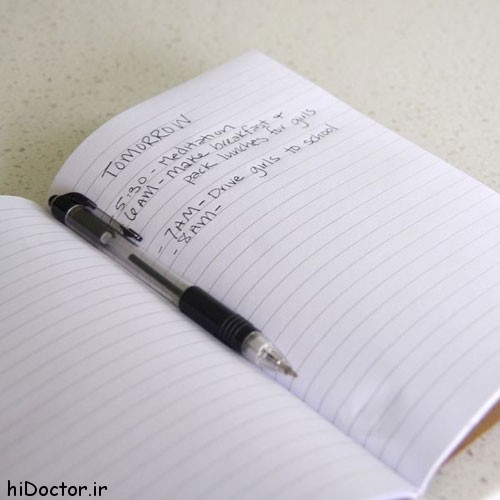 TOMORROW
5:30 - Meditation
6AM - Make breakfast &
pack lunches for girls
- 7AM - Drive girls to school
- 8AM -
hiDoctor.ir